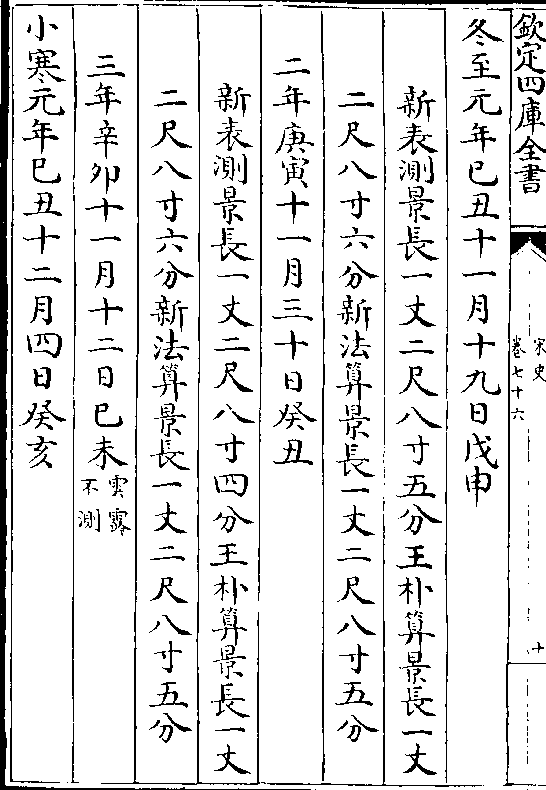 欽定四庫全書
宋史
卷七十六
十
冬至元年已丑十一月十九日戊申
新表測景長一丈二尺八寸五分王朴算景長一丈
二尺八寸六分新法算景長一丈二尺八寸五分
二年庚寅十一月三十日癸丑
新表測景長一丈二尺八寸四分王朴算景長一丈
二尺八寸六分新法算景長一丈二尺八寸五分
三年辛夘十一月十二日已未
雲露
不測
小寒元年已丑十二月四日癸亥